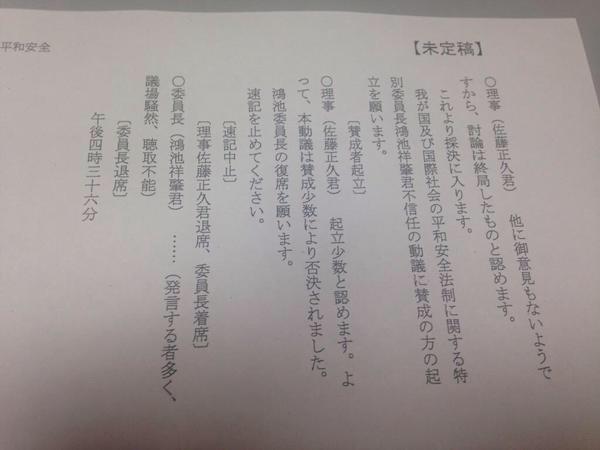 平和安全
【未定稿】
○理事（佐藤正久君）　他に御意見もないようで
すから、討論は終局したものと認めます。
これより採決に入ります。
我が国及び国際社会の平和安全法制に関する特
別委員長鴻池祥肇君不信任の動議に賛成の方の起
立を願います。
〔賛成者起立〕
○理事（佐藤正久君）　起立少数と認めます。よ
って、本動議は賛成少数により否決されました。
鴻池委員長の復席を願います。
速記を止めてください。
〔速記中止〕
〔理事佐藤正久君退席、委員長着席〕
○委員長（鴻池祥肇君）　……（発言する者多く、
議場騒然、聴取不能）
〔委員長退席〕
午後四時三十六分